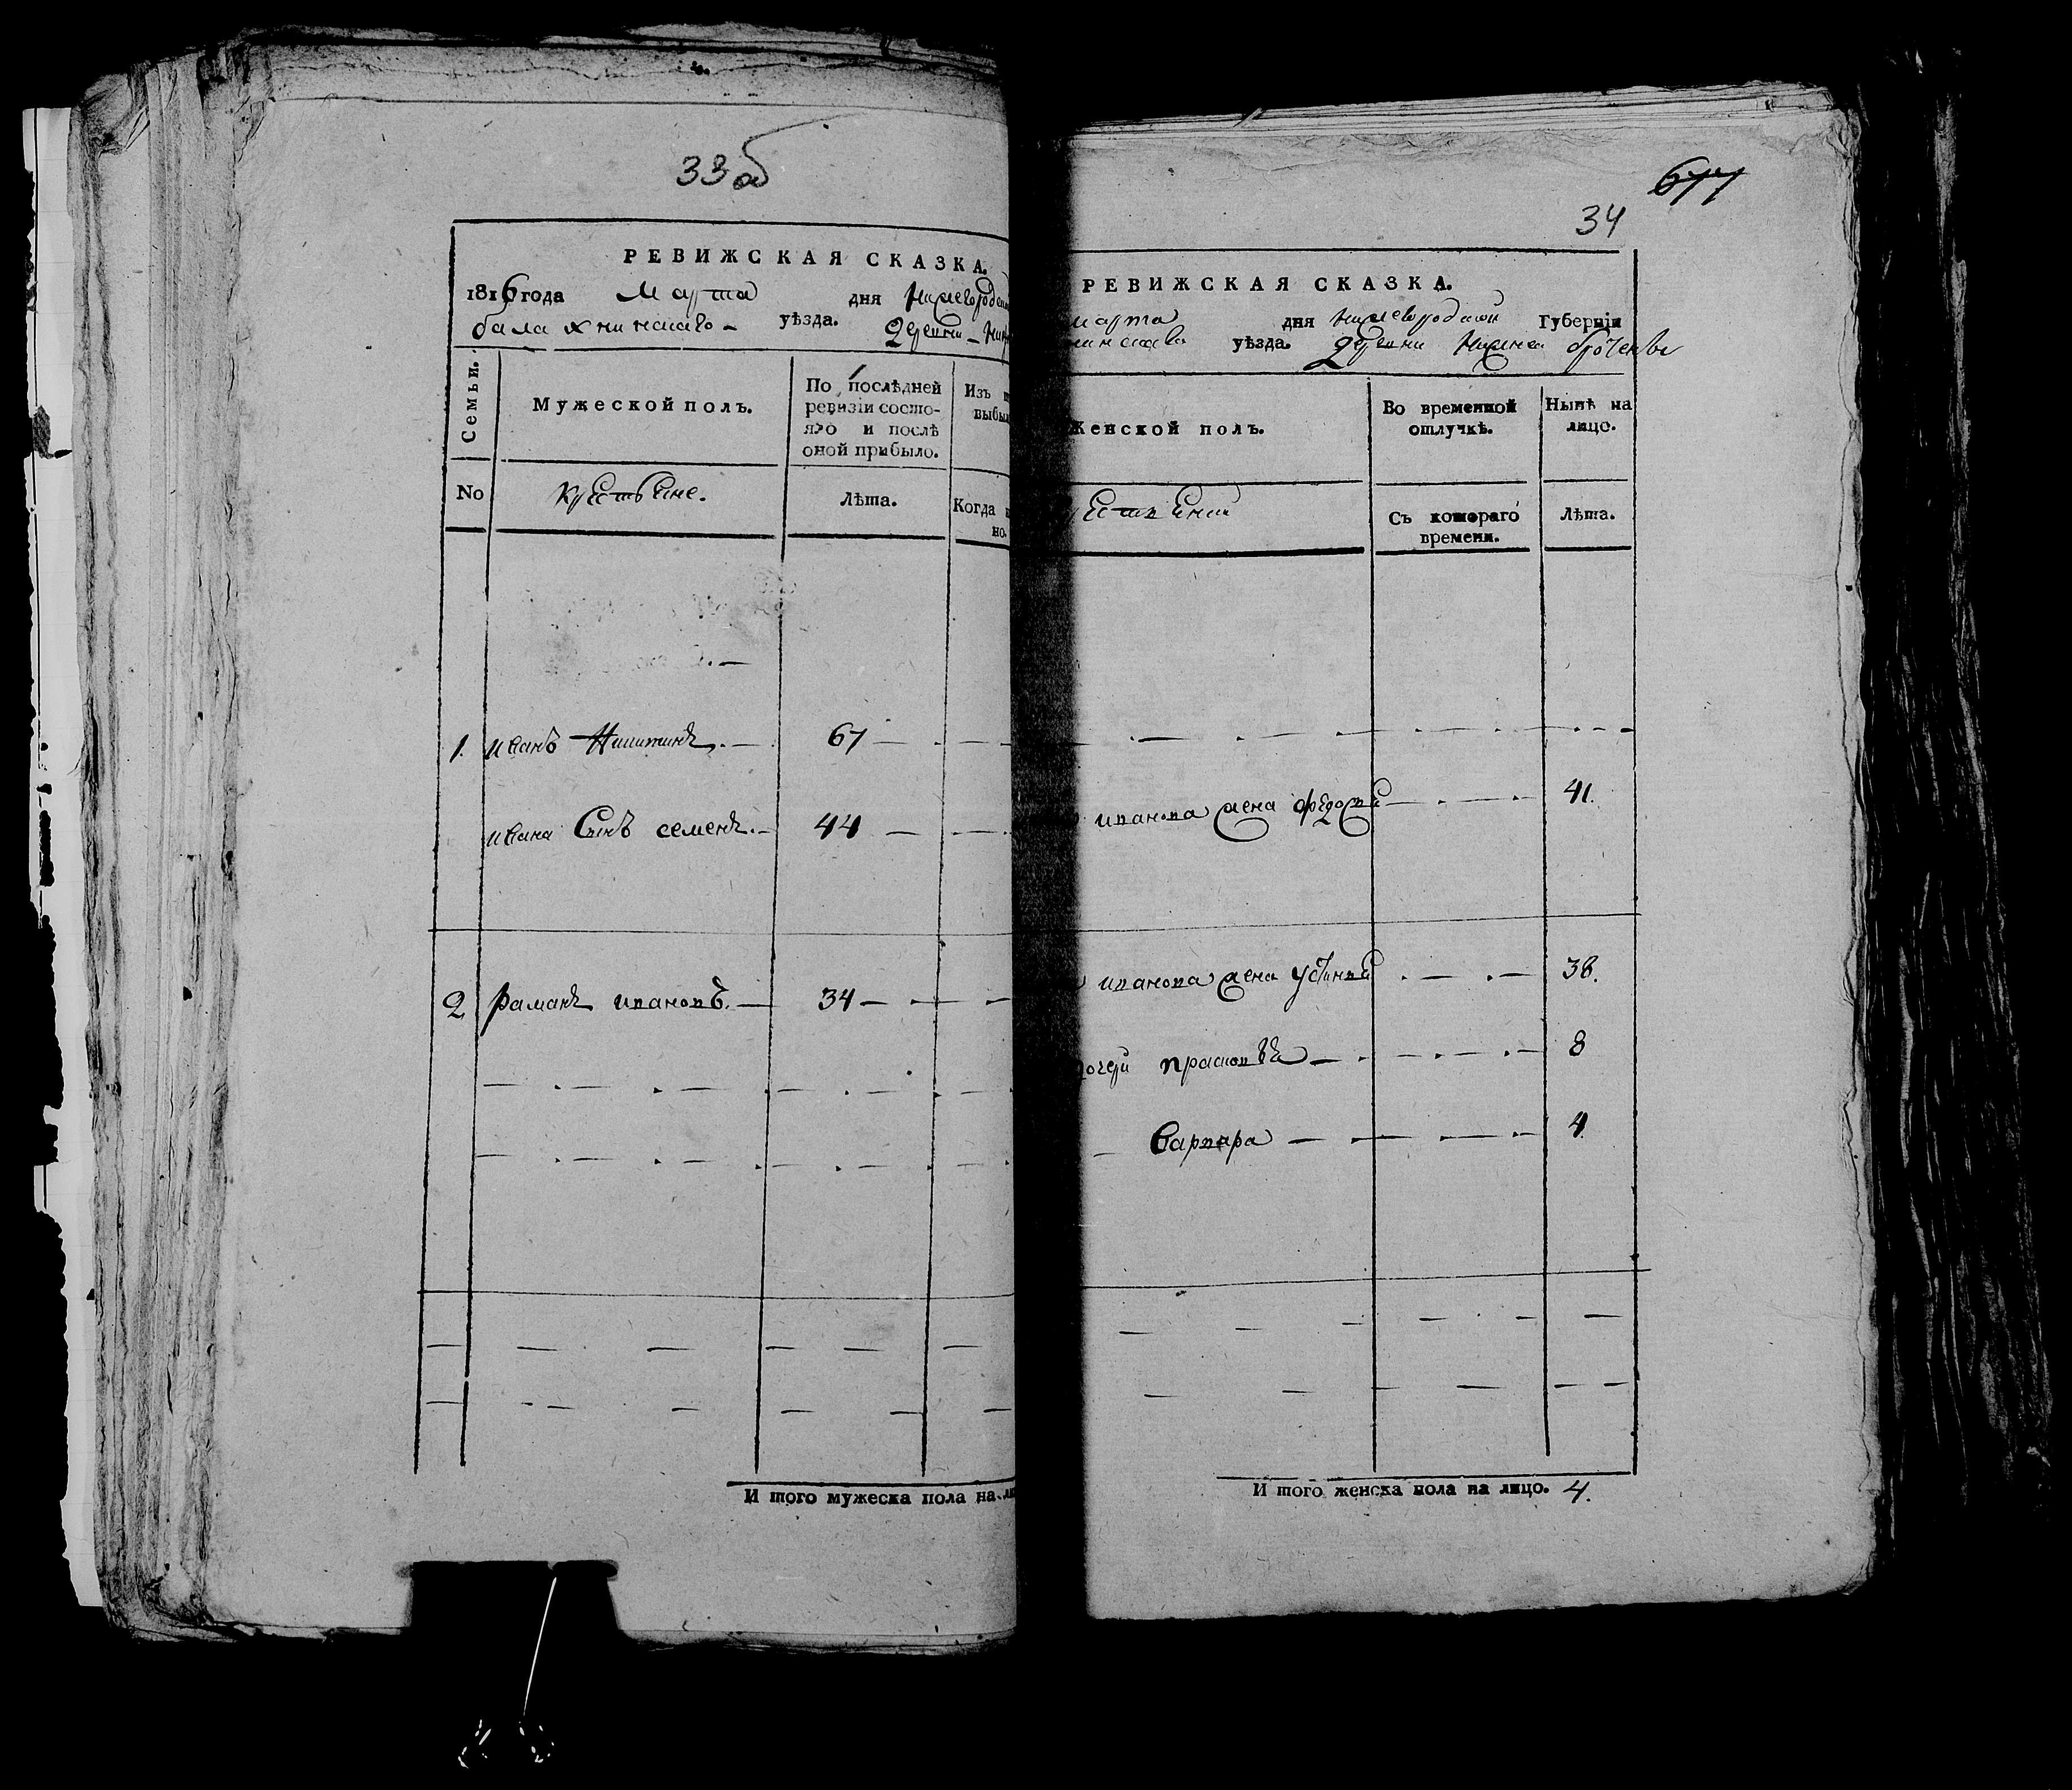 33 об
РЕВИЖСКАЯ СКАЗКА.
1816 года Марта дня Нижегород
балахнинскаго - уѣзда. Деревни - Ни
Семьи.
Мужеской полъ.
По послѣдней ревизіи состо-
яло и послѣ
оной прибыло.
Изъ
выбы
No
крестьяне.
Лѣта.
Когда
но.
1. иванъ Никитинъ. 67
ивана Сынъ семенъ. 44
2 раманъ ивановъ. 34
И того мужеска пола на ли
677
34
РЕВИЖСКАЯ СКАЗКА.
марта дня нижегородской Губерніи
нинскаго уѣзда. Деревни
Женской полъ.
Во временной
отлучкѣ.
Нынѣ на
лицо.
Съ котораго
времени.
Лѣта.
иванова жена 41.
иванова жена устинья 38.
дочери прасковья 8
варвара 4
И того женска пола на лицо. 4.